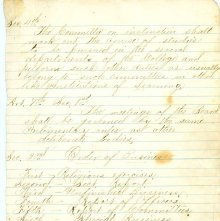 Sec. 4th
The Committee on instruction shall
mark out the course of studies
to be pursued in the several
departments of the College and
perform such other duties as usually
belong to such committees in other
like institutions of learning.
Art. 7th Sec. 1st
The meetings of the Board
shall be governed by the same
Parliamentary rules as other
deliberate bodies.
Sec. 2nd Order of Business
First - Religious exercises
Second - Read Report
Third -
Fourth - Report of Officers
Fifth - Report of Committees